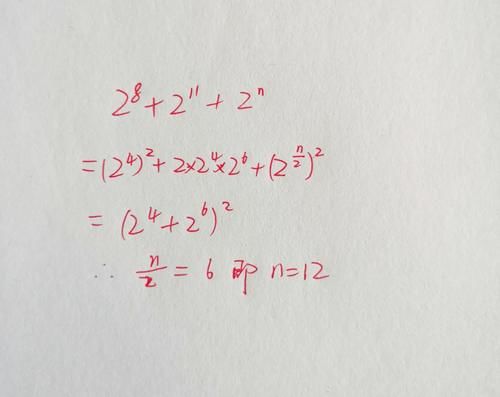 2⁸+2¹¹+2ⁿ
=(2⁴)²+2×2⁴×2⁶+(2^(n/2))²
=(2⁴+2⁶)²
∴ n/2=6 即 n=12